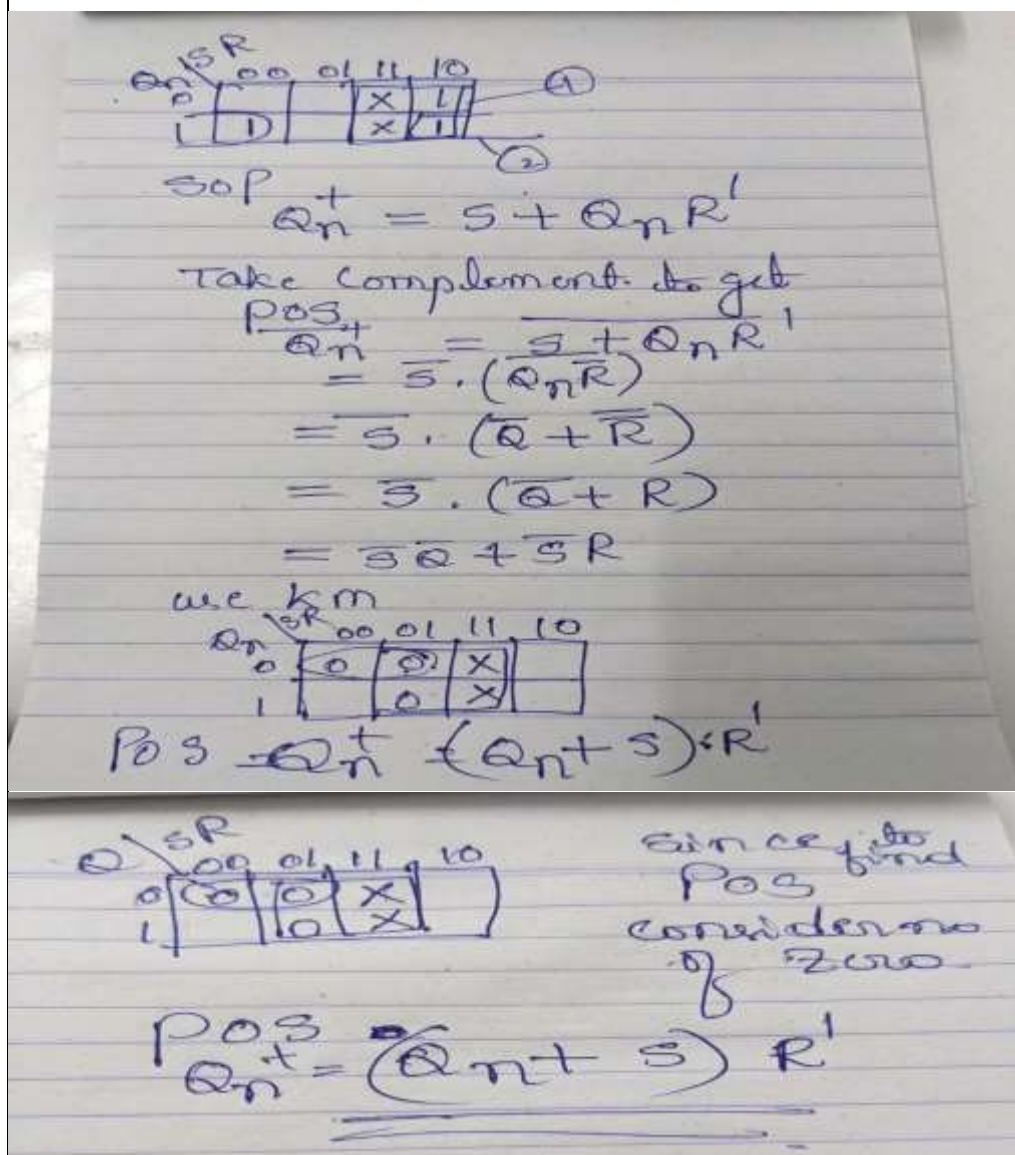 SR
Qn 00 01 11 10
0 X 1 ①
1 1 X 1
②
SOP
Qn⁺ = S + QnR'
Take complement to get
POS
Q̅n̅⁺ = S̅ ̅+̅ ̅Q̅n̅R̅'
= S̅ . (Q̅n̅R̅̅)
= S̅ . (Q̅ + R̅̅)
= S̅ . (Q̅ + R)
= S̅Q̅ + S̅R
use km
SR
Qn 00 01 11 10
0 0 0 X
1 0 X
POS Qn⁺ = (Qn + S) . R'
SR
Q 00 01 11 10
0 0 0 X
1 0 X
since to find
POS
consider no
of zero
POS
Qn⁺ = (Qn + S) R'